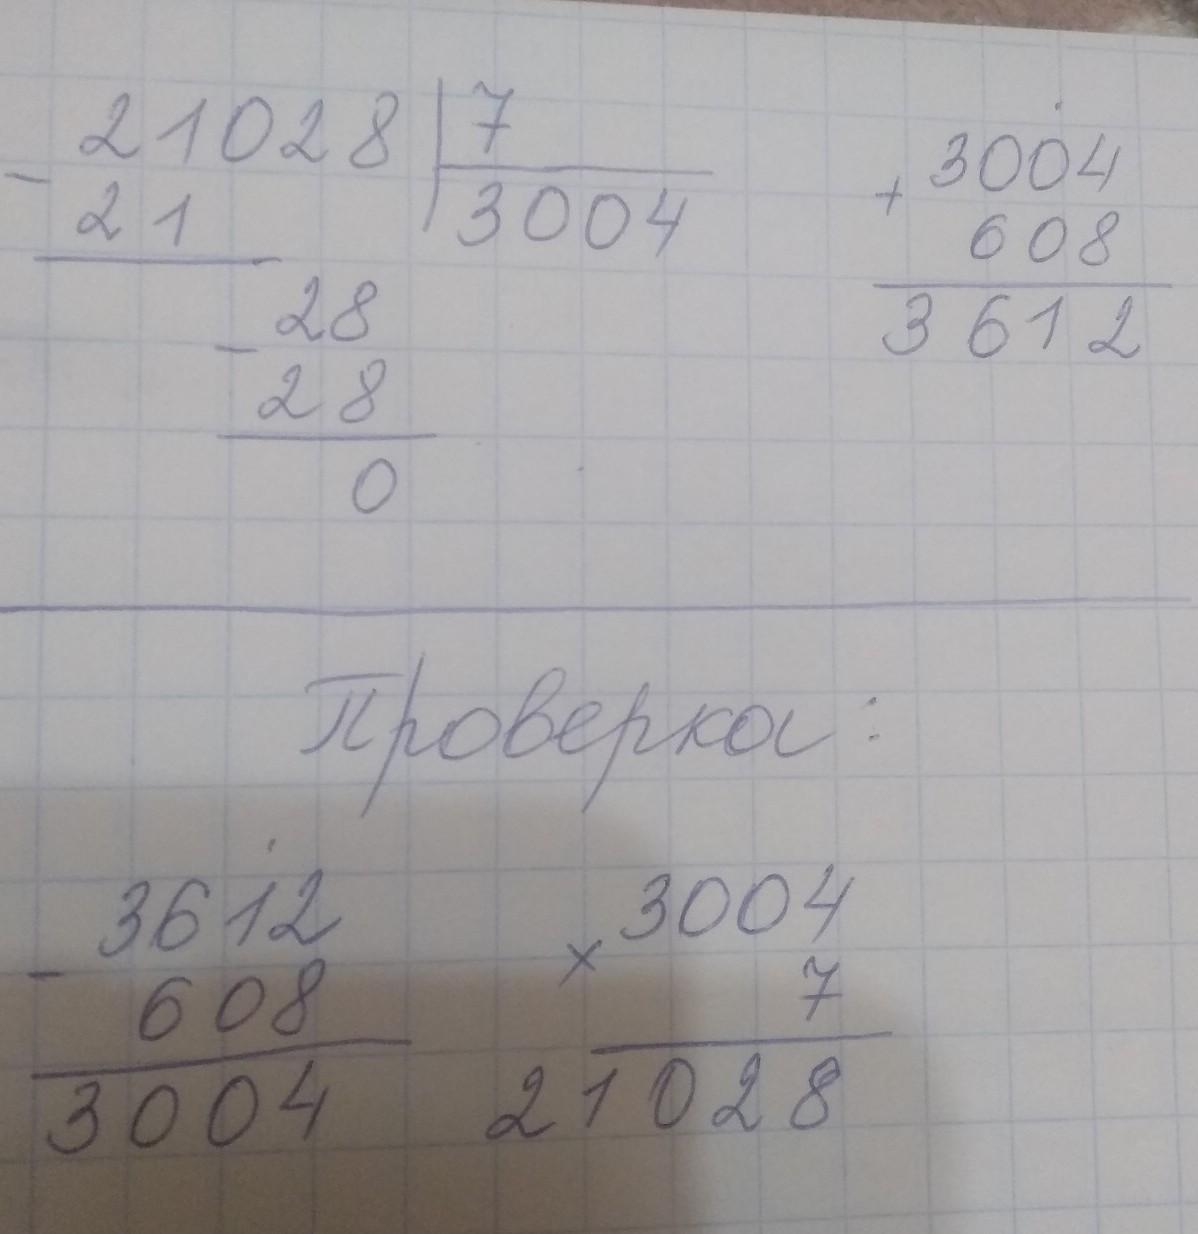 21028 | 7
- 21 | 3004
28
- 28
0
3004
+ 608
3612
Проверка:
3612
- 608
3004
3004
× 7
21028